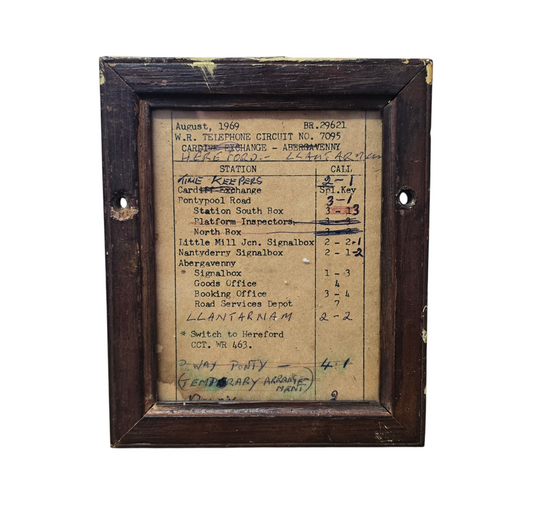 August, 1969 BR.29621
W.R. TELEPHONE CIRCUIT NO. 7095
CARDIFF EXCHANGE - ABERGAVENNY
HEREFORD - LLANTARNAM
STATION CALL
TIME KEEPERS 2-1
Cardiff Exchange Spl.Key
Pontypool Road 3-1
Station South Box 3 - 3
Platform Inspectors
North Box
Little Mill Jcn. Signalbox 2 - 2-1
Nantyderry Signalbox 2 - 1-2
Abergavenny
* Signalbox 1 - 3
Goods Office 4
Booking Office 3 - 4
Road Services Depot 7
LLANTARNAM 2-2
* Switch to Hereford
CCT. WR 463.
WAY PONTY - 4-1
(TEMPORARY ARRANGE-
MENT)